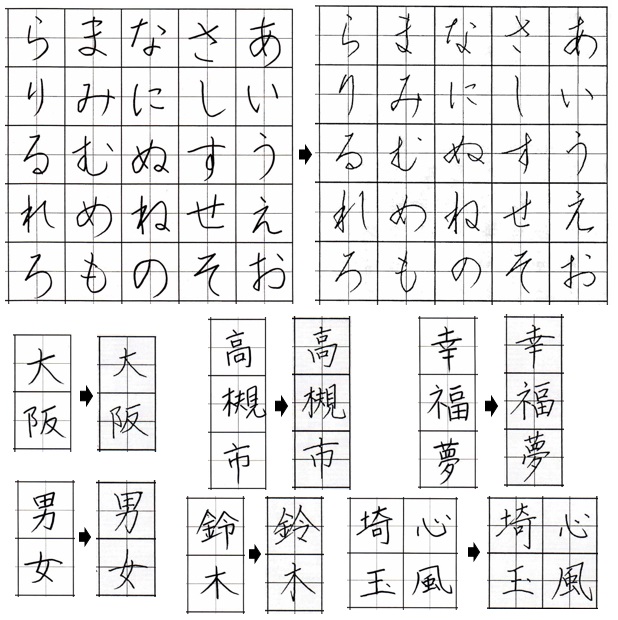 あいうえお
さしすせそ
なにぬねの
まみむめも
らりるれろ
あいうえお
さしすせそ
なにぬねの
まみむめも
らりるれろ
大阪
大阪
高槻市
高槻市
幸福夢
幸福夢
男女
男女
鈴木
鈴木
心風
埼玉
心風
埼玉